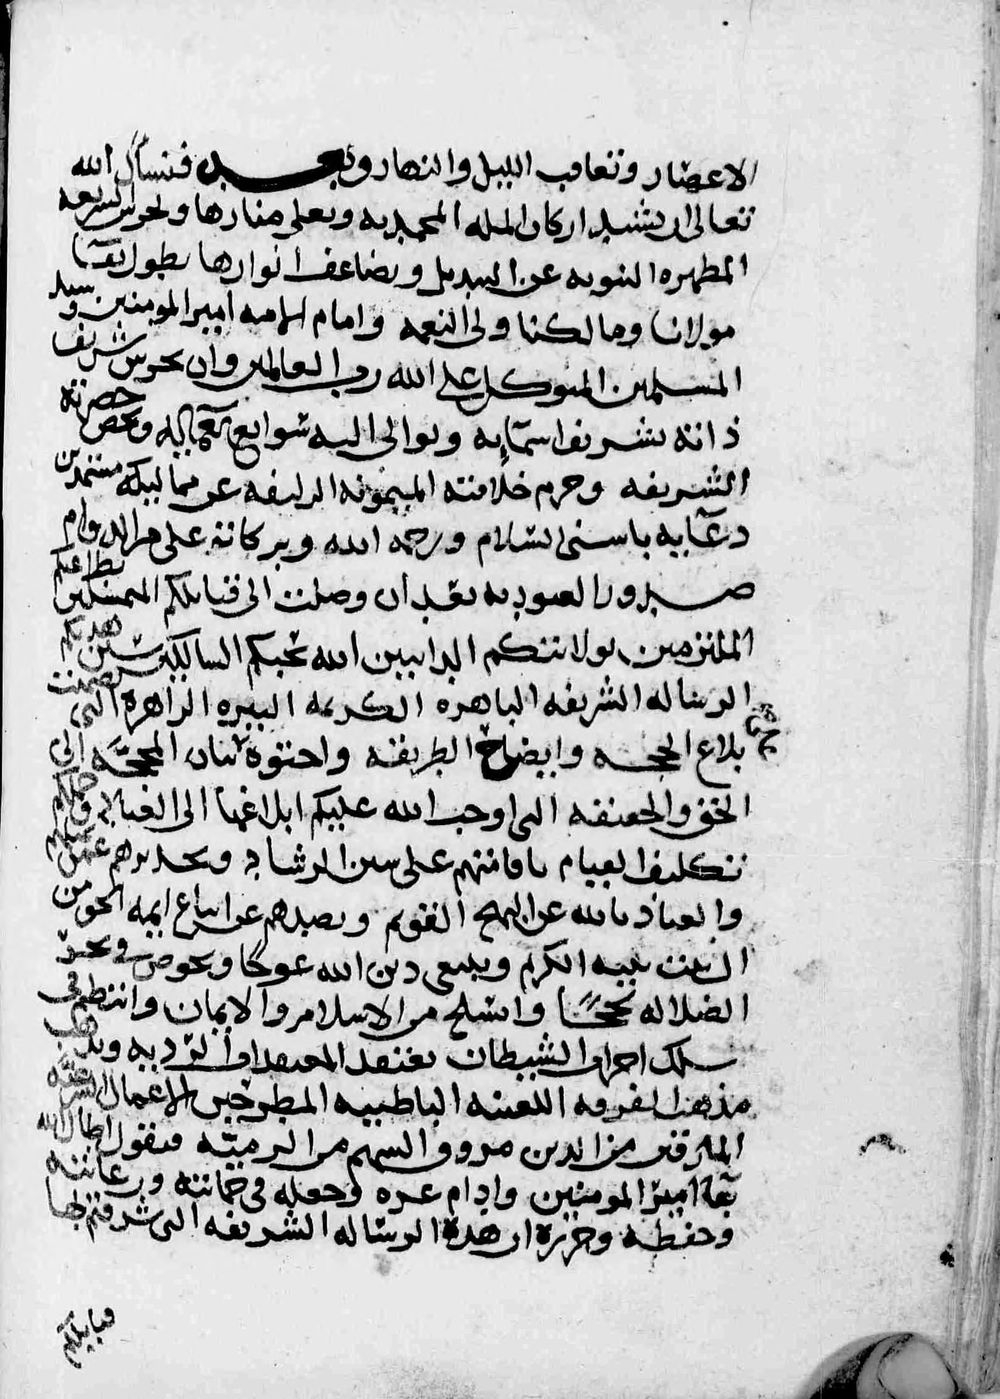 الاعصار وتعاقب الليل والنهار وبعد فنسأل الله
تعالى ان يشيد اركان المله المحمديه ويعلى منارها ويحرس الشريعه
المطهره النبويه عن التبديل ويضاعف انوارها بطول بقآ
مولانا ومالكنا ولى النعمه وامام الامه امير المومنين وسيد
المسلمين المتوكل على الله رب العالمين وان يحرس شريف
ذاته بشريف اسمآيه ويوالى اليه سوابغ نعمايه ويخص حضرته
الشريفه وحرم خلافته الميمونه المنيفه عن مماليكه مستمدين
دعآيه باسنى السلام ورحمه الله وبركاته على مر الدوام
صدور العبوديه بعد ان وصلت الى قبايلكم المتمسكين بطاعتكم
الملتزمين بولايتكم الداينين الله بمحبتكم السالكين سنن هديكم
الرساله الشريفه الباهره الكريمه النيره الزاهرة التى تضمنت
بلاغ الحجه وايضاح الطريقه واحتوة بيان المحجه الى
الحق والحقيقه التى اوجب الله عليكم ابلاغها الى العباد وحملكم
تكليف القيام باقامتهم على سنن الرشاد وتحذيرهم عمن
والعياذ بالله عن النهج القويم ويصدهم عن اتباع ايمه الحق من
ال بيت نبيه الكريم ويبغى دين الله عوجا ويخوض فى بحر
الضلاله لججًا وانسلخ من الاسلام والايمان وانتظم فى
سلك احزاب الشيطان يعتقد المعتقدات الرديه ويذهب
مذهب الفرقه اللعينه الباطنيه المطرحين للاعمال الشرعيه
المارقين من الدين مروق السهم من الرميه فنقول اطال الله
بقآ امير المومنين وادام عزه وجعله فى حمايته ورعايته
وحفظه وحرزه ان هذه الرساله الشريفه التى شرفتم بها
قبايلكم